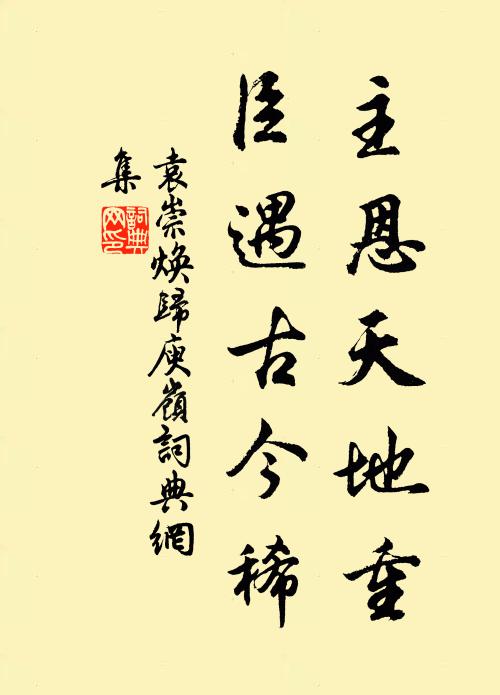 主恩天地重
臣遇古今稀
袁崇煥歸庾嶺詞典網
集
詞典
网印